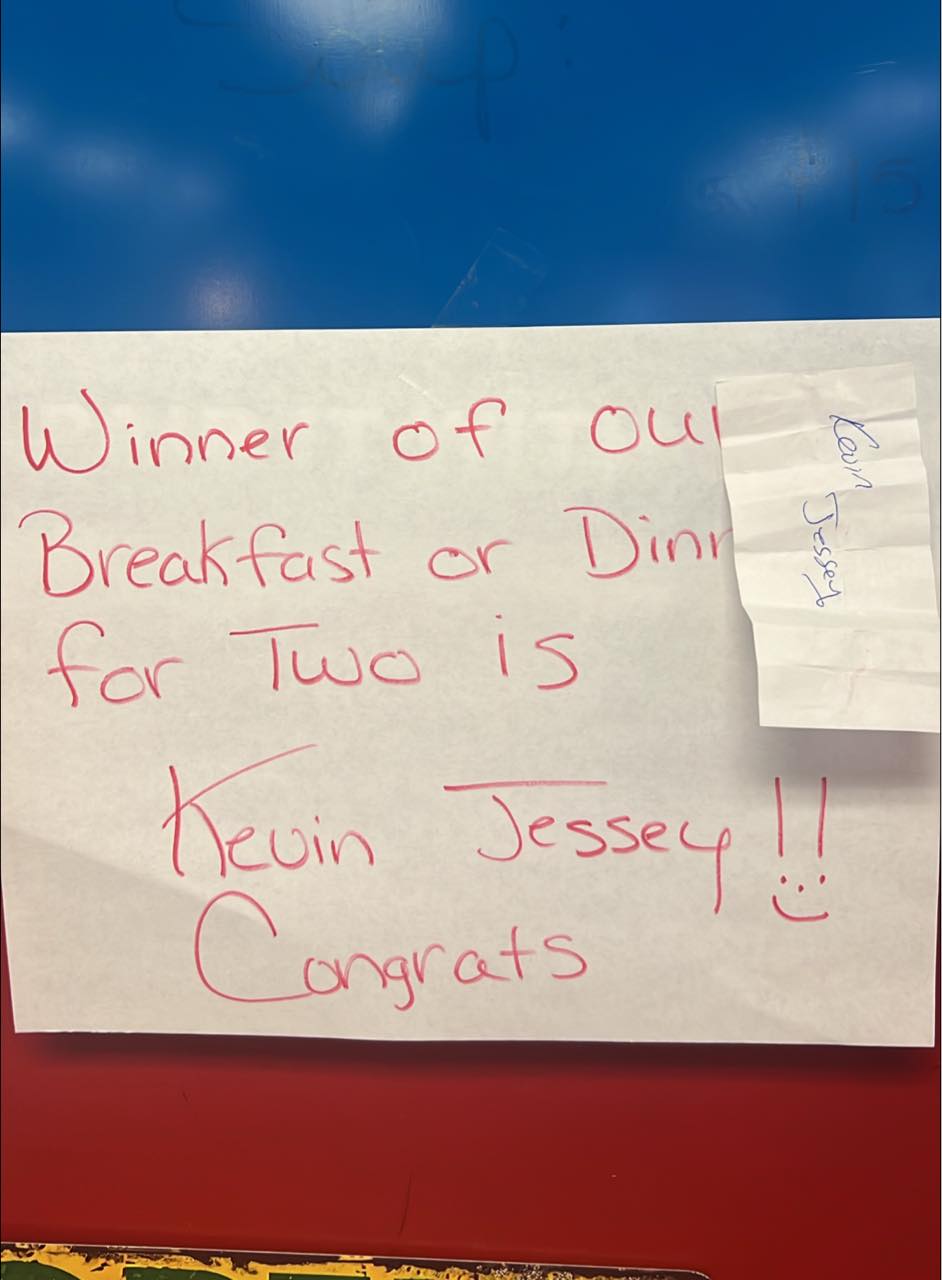 Winner of our
Breakfast or Dinn
for Two is
Kevin Jessey!!
Congrats
Kevin Jessey